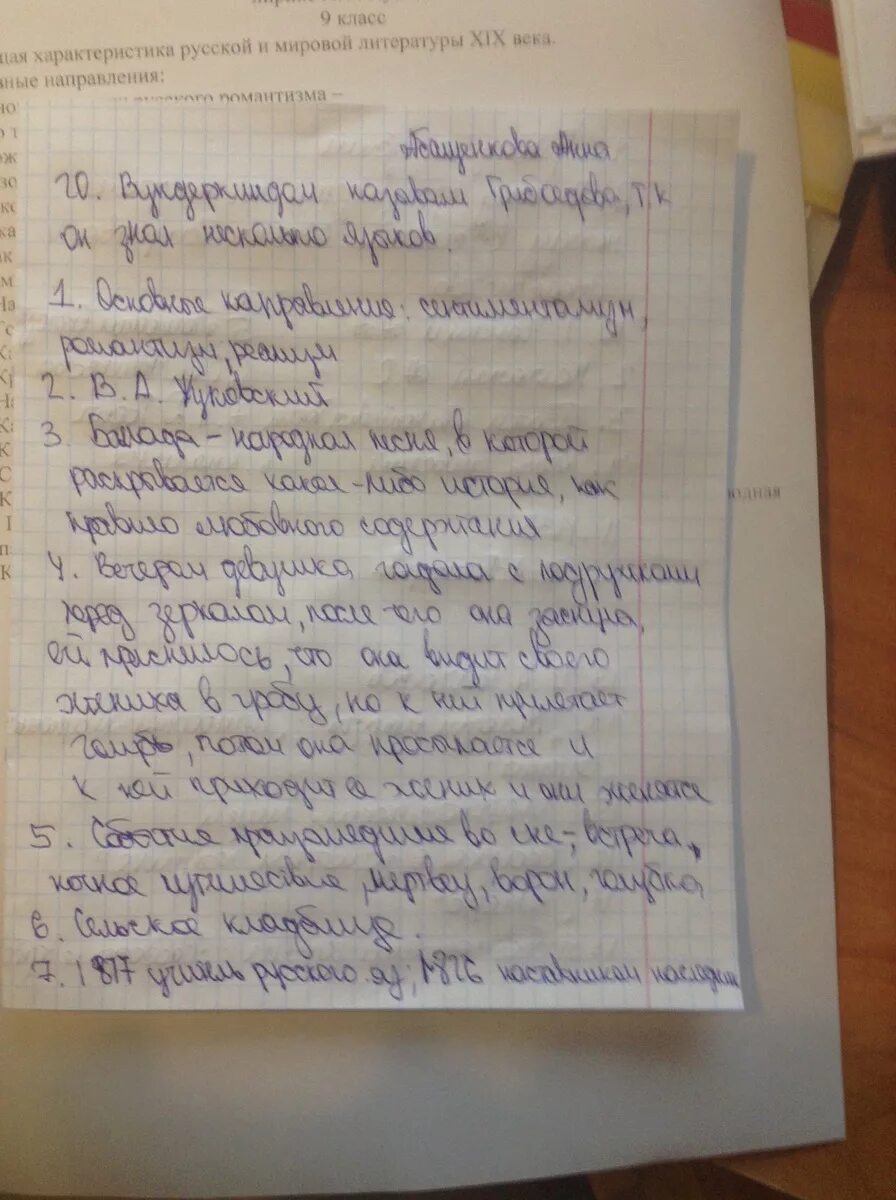 9 класс
характеристика русской и мировой литературы XIX века.
направления:
романтизма –
Анна
20. Вундеркиндом называли Грибоедова, т.к
он знал несколько языков.
1. Основные направления: сентиментализм,
романтизм, реализм
2. В. А. Жуковский
3. Баллада – народная песня, в которой
раскрывается какая-либо история, как
правило любовного содержания
4. Вечером девушка гадала с подружками
перед зеркалом, после того она заснула,
ей приснилось, что она видит своего
жениха в гробу, но к ней прилетает
голубь, потом она просыпается и
к ней приходит жених и они женятся
5. События произошедшие во сне-, встреча,
ночное путешествие, мертвец, ворон, голубка
6. Сельское кладбище.
7. 1817 учитель русского яз; 1826 наставником наследник